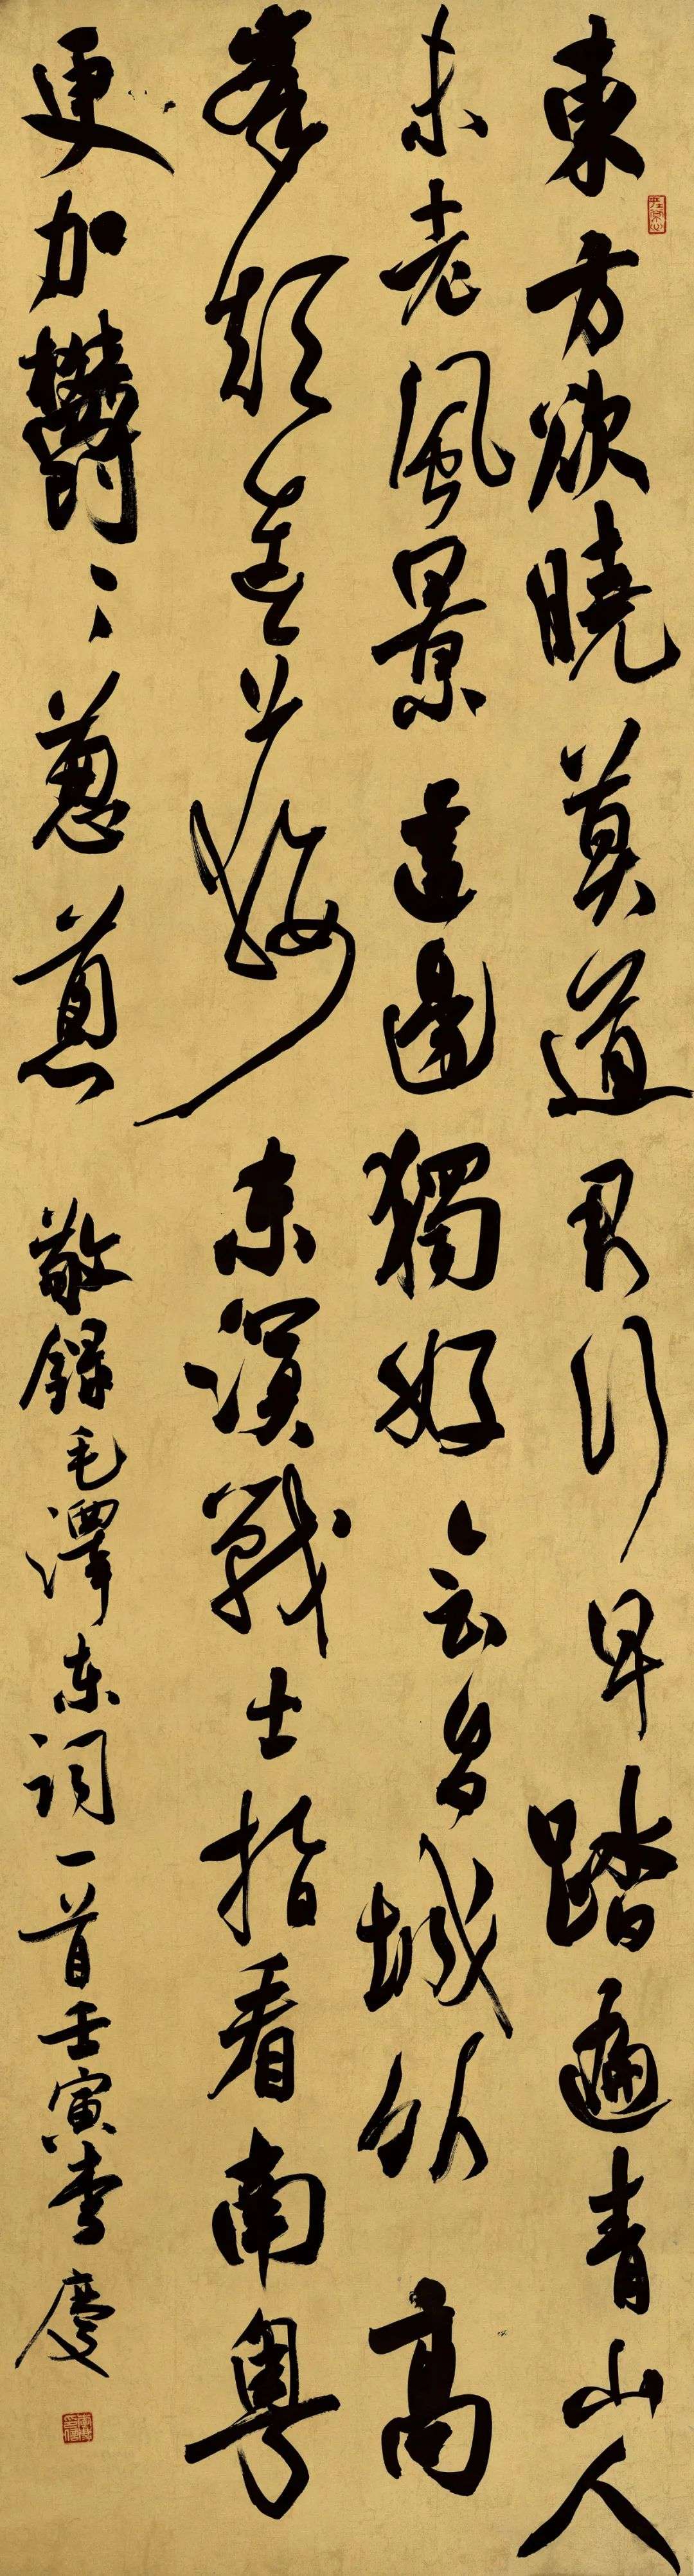 東方欲曉莫道君行早踏遍青山人
未老風景這邊獨好会昌城外高
峯顛連直接东溟戰士指看南粤
更加鬱〻蔥蔥 敬録毛澤东詞一首壬寅李慶